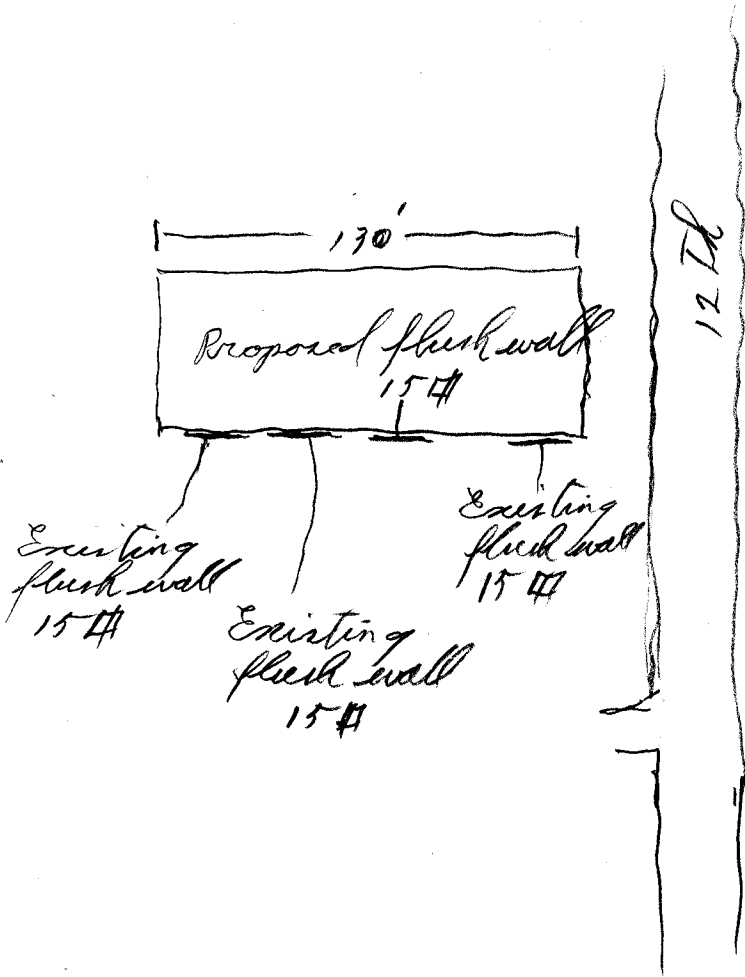 130'
12 Th
Proposed flush wall
15 #
Existing
flush wall
15 #
Existing
flush wall
15 #
Existing
flush wall
15 #